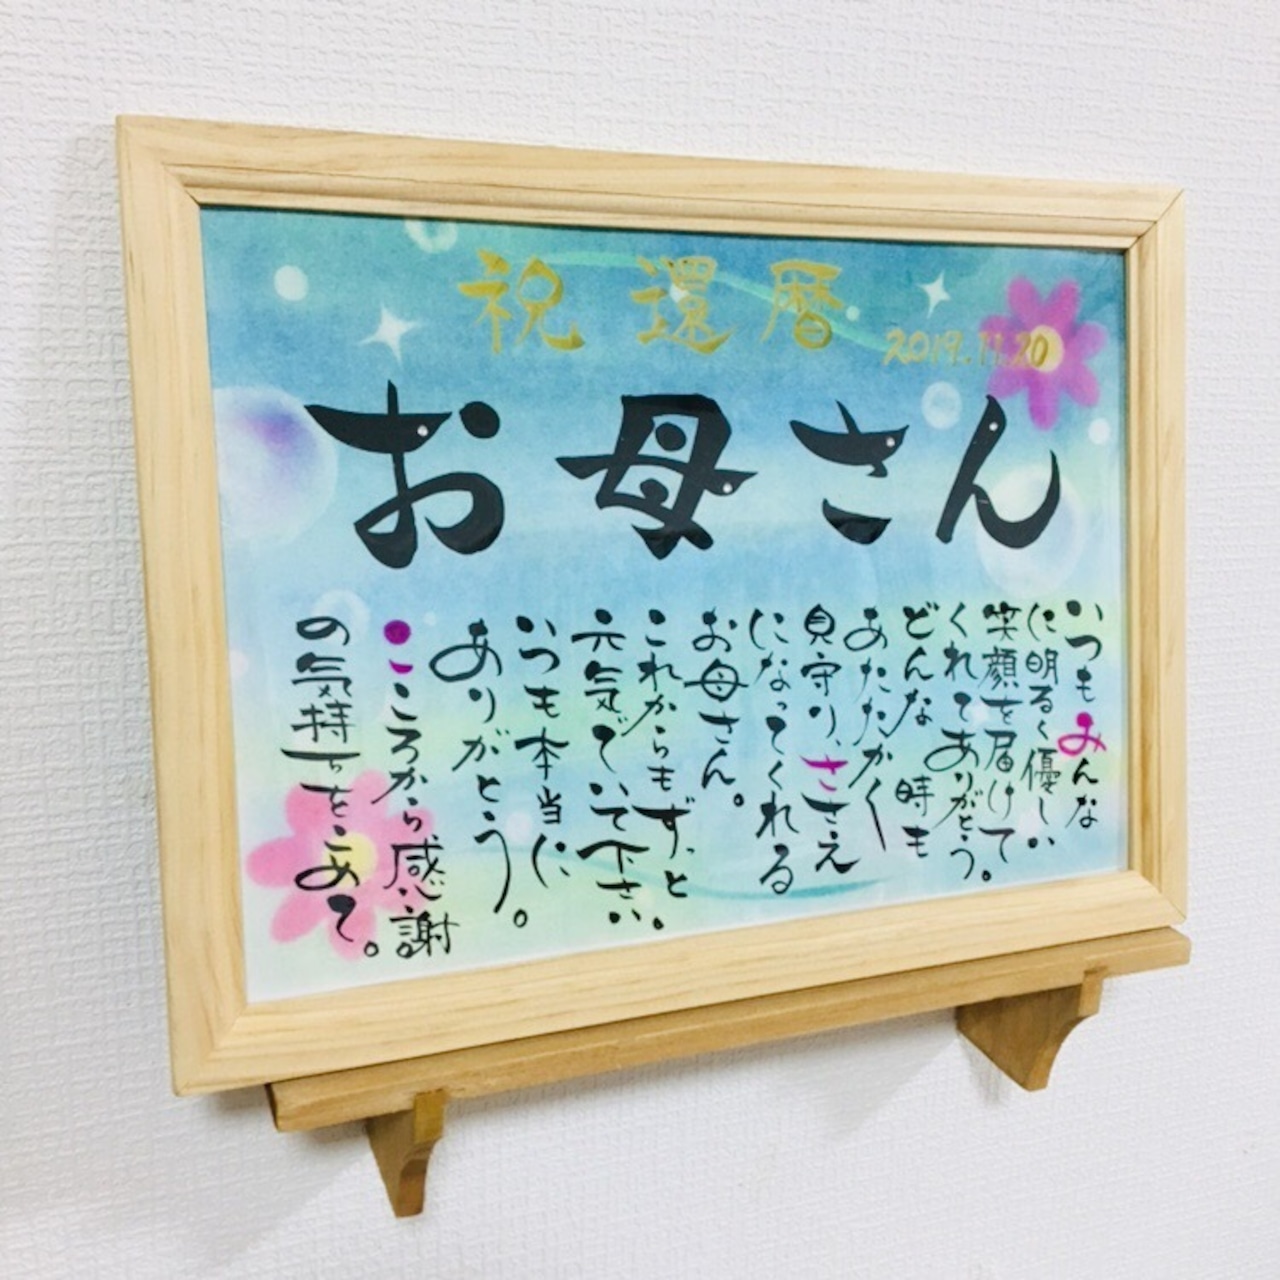 祝還暦
2019.11.20
お母さん
いつもみんな
に明るく優しい
笑顔を届けて
くれてありがとう。
どんな時も
あたたかく
見守り、ささえ
になってくれる
お母さん。
これからもずっと
元気でいて下さい。
いつも本当に
ありがとう。
こころから感謝
の気持ちをこめて。